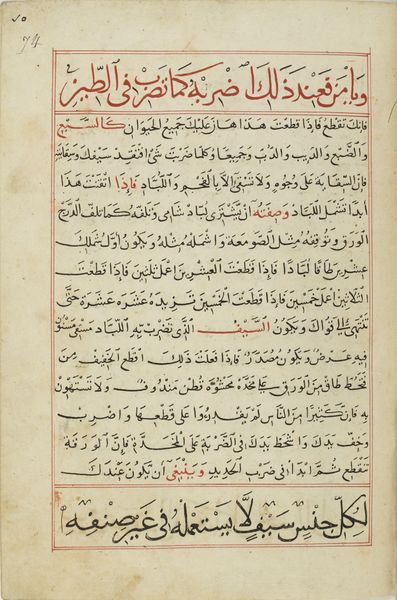 ٧٥
74
ويا من فعند ذلك اضربه كما تضرب في الطين
فانك تقطع فاذا قطعت هذا هان عليك جميع الحيوان كالسبع
والضبع والذيب والدب وجميعا وكلما ضربت شئ افتقد سيفك وسقاه
فان السقاية على وجوه ولا تسقى الا باللحم واللباد فاذا اتقنت هذا
ابدا تشتغل اللباد وصفته ان يشترى لباد شامى وتلفه كما تلف الدرج
الورق وتوقفه مثل الصومعة واشمله مثله ويكون اول شملك
عشرين طاقا لبادا فاذا قطعت العشرين اعمل ثلثين فاذا قطعت
الثلاثين اعمل خمسين فاذا قطعت الخمسين تزيده عشره عشره حتى
تنتهى الى قواك ويكون السيف الذى تضرب به اللباد مسقى
فيه عرض ويكون مصدر فاذا فعلت ذلك اقطع الخفيف من
فتحط طاق من الورق على مخده محشوة قطن مندوف ولا تستهون
به فان كثيرا من الناس لم يقدروا على قطعها واضرب
وخفف يدك واشحط يدك فى الضربة على المخدة فان الورقة
تنقطع ثم ابدا فى ضرب الحديد وينبغى ان يكون عندك
لكل جنس سيف لا يستعمله فى غير صنفه